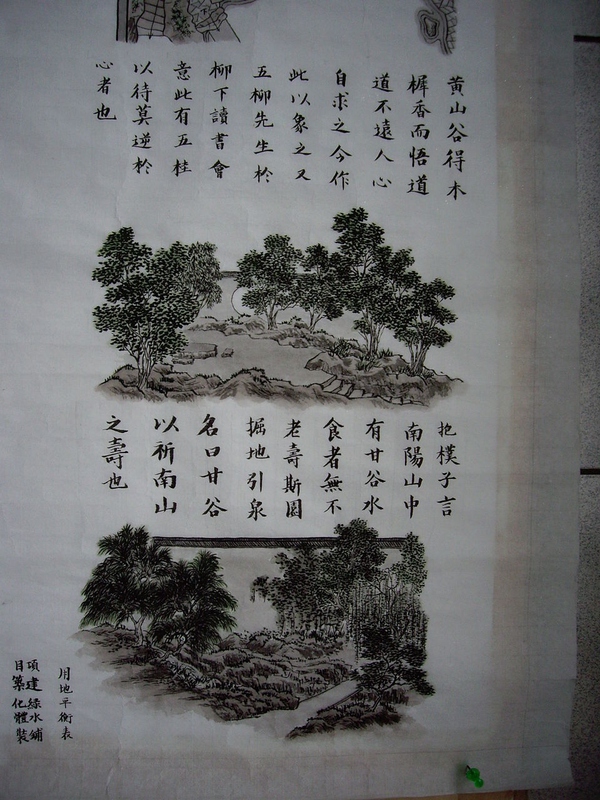 黄山谷得木
樨香而悟道
道不遠人心
自求之今作
此以象之又
五柳先生於
柳下讀書會
意此有五桂
以待莫逆於
心者也
抱樸子言
南陽山中
有甘谷水
食者無不
老壽斯園
掘地引泉
名曰甘谷
以祈南山
之壽也
用地平衡表
項目
建築
綠化
水體
鋪裝